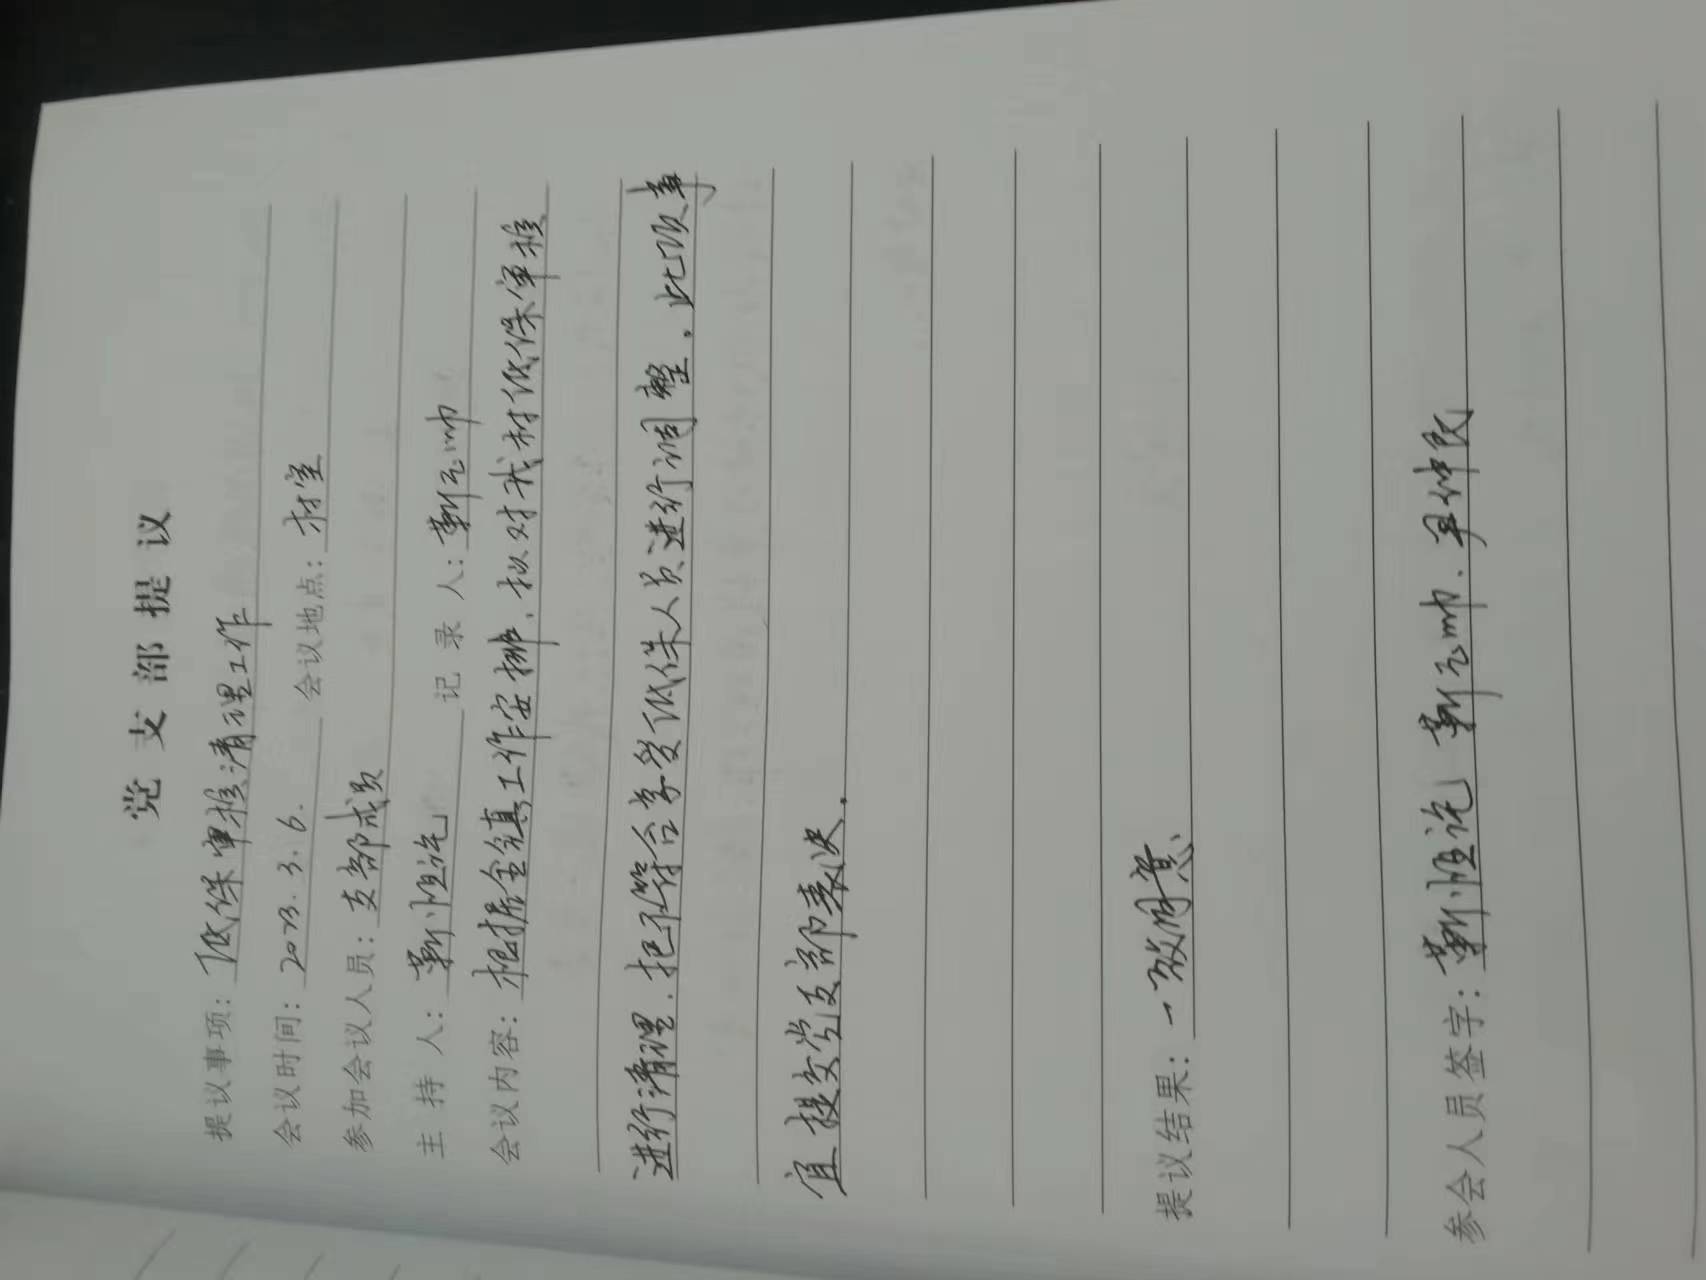 党支部提议
提议事项：低保审核清理工作
会议时间：2023.3.6. 会议地点：村室
参加会议人员：支部成员
主持人：靳恒 记录人：靳
会议内容：根据全镇工作安排，拟对我村低保审核
进行清理，把不符合享受低保人员进行调整，此项事
宜提交党支部表决。
提议结果：一致同意
参会人员签字：靳恒 靳